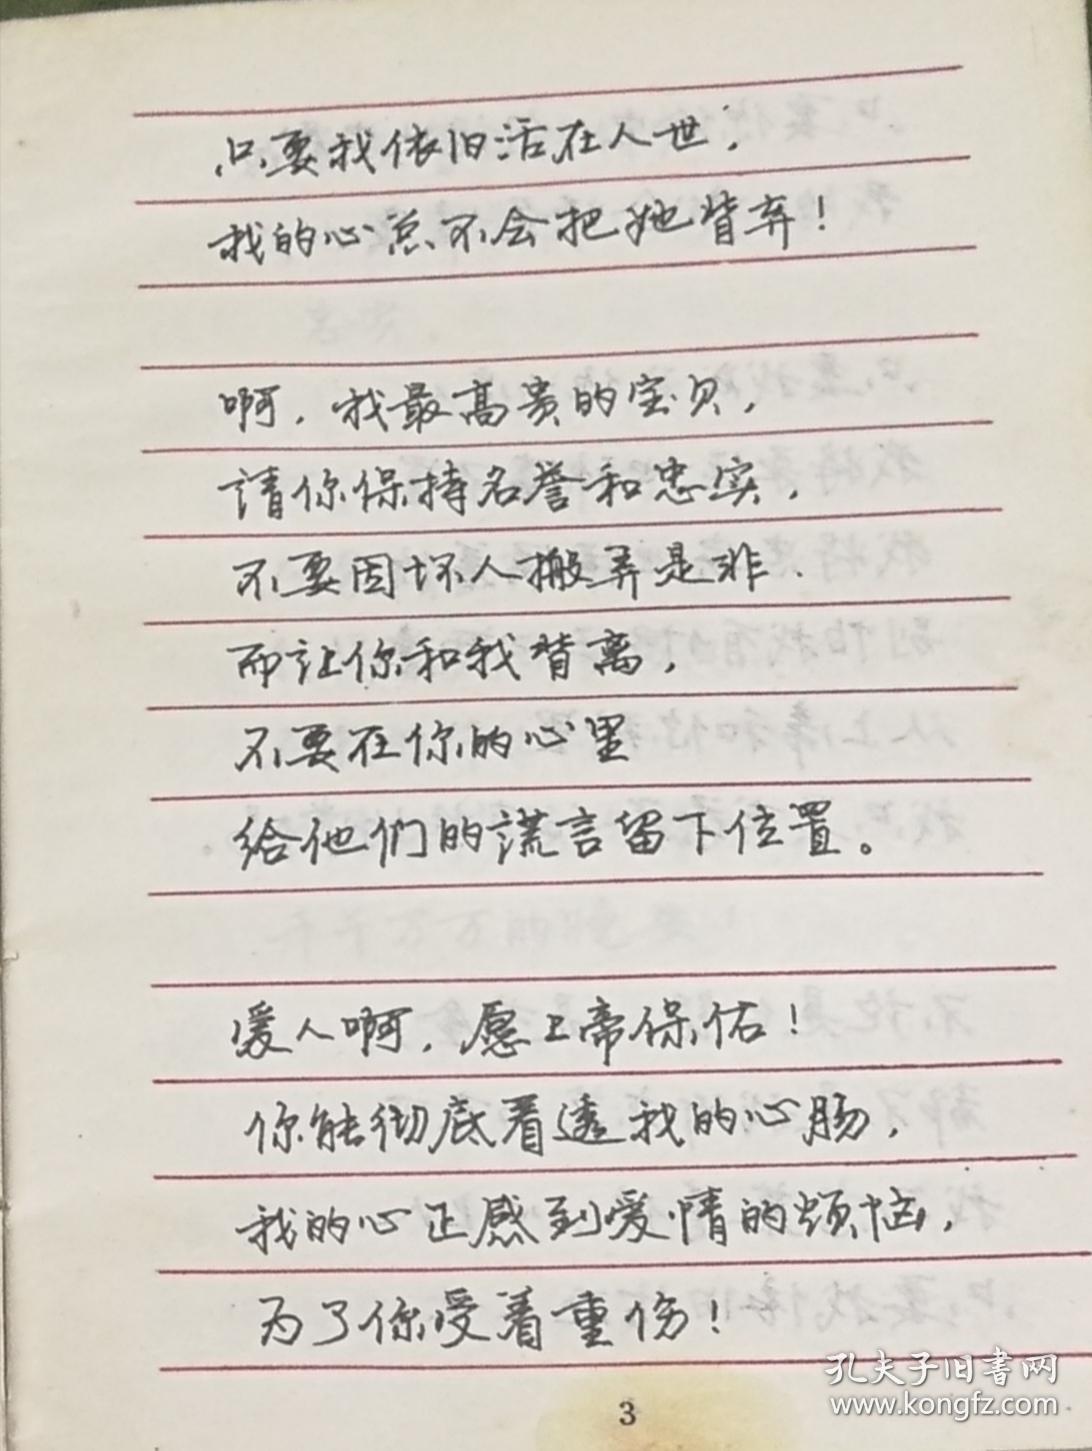 只要我依旧活在人世，
我的心总不会把她背弃！
啊，我最高贵的宝贝，
請你保持名誉和忠实，
不要因坏人搬弄是非、
而让你和我背离，
不要在你的心里
给他们的謊言留下位置。
爱人啊，愿上帝保佑！
你能彻底看透我的心肠，
我的心正感到爱情的烦恼，
为了你受着重伤！
3
孔夫子旧书网
www.kongfz.com